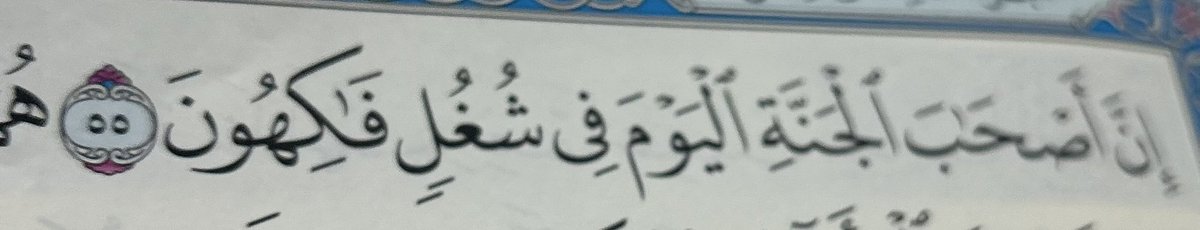 إِنَّ أَصْحَٰبَ ٱلْجَنَّةِ ٱلْيَوْمَ فِى شُغُلٍ فَٰكِهُونَ ٥٥